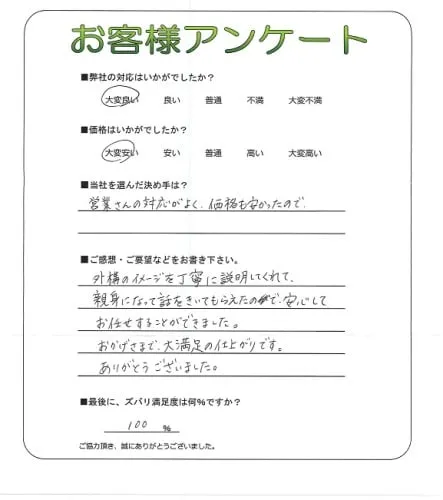 お客様アンケート
■弊社の対応はいかがでしたか?
大変良い 良い 普通 不満 大変不満
■価格はいかがでしたか?
大変安い 安い 普通 高い 大変高い
■当社を選んだ決め手は?
営業さんの対応がよく、価格も安かったので。
■ご感想・ご要望などをお書き下さい。
外構のイメージを丁寧に説明してくれて、
親身になって話をきいてもらえたので、安心して
お任せすることができました。
おかげさまで、大満足の仕上がりです。
ありがとうございました。
■最後に、ズバリ満足度は何%ですか?
100 %
ご協力頂き、誠にありがとうございました。